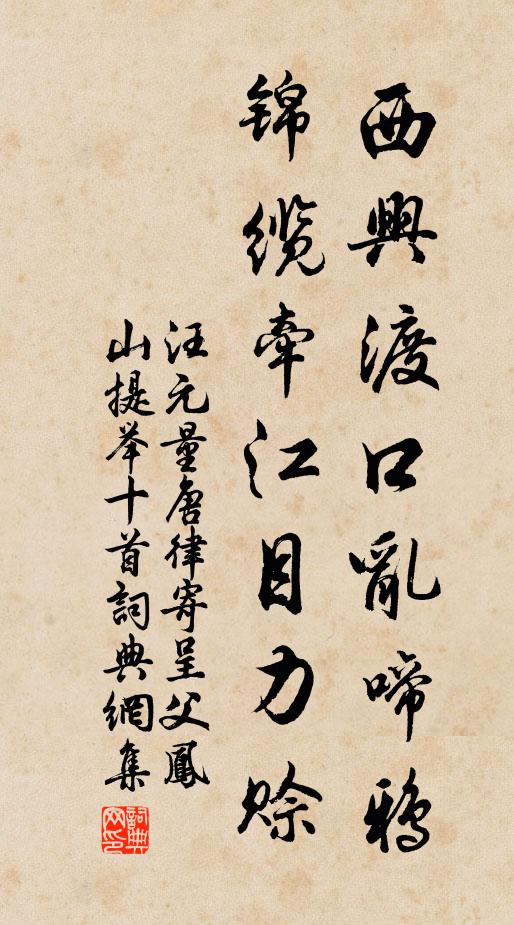 西興渡口亂啼鴉
錦纜牽江目力賒
汪元量唐律寄呈父鳳
山提举十首詞典網集
詞典网印